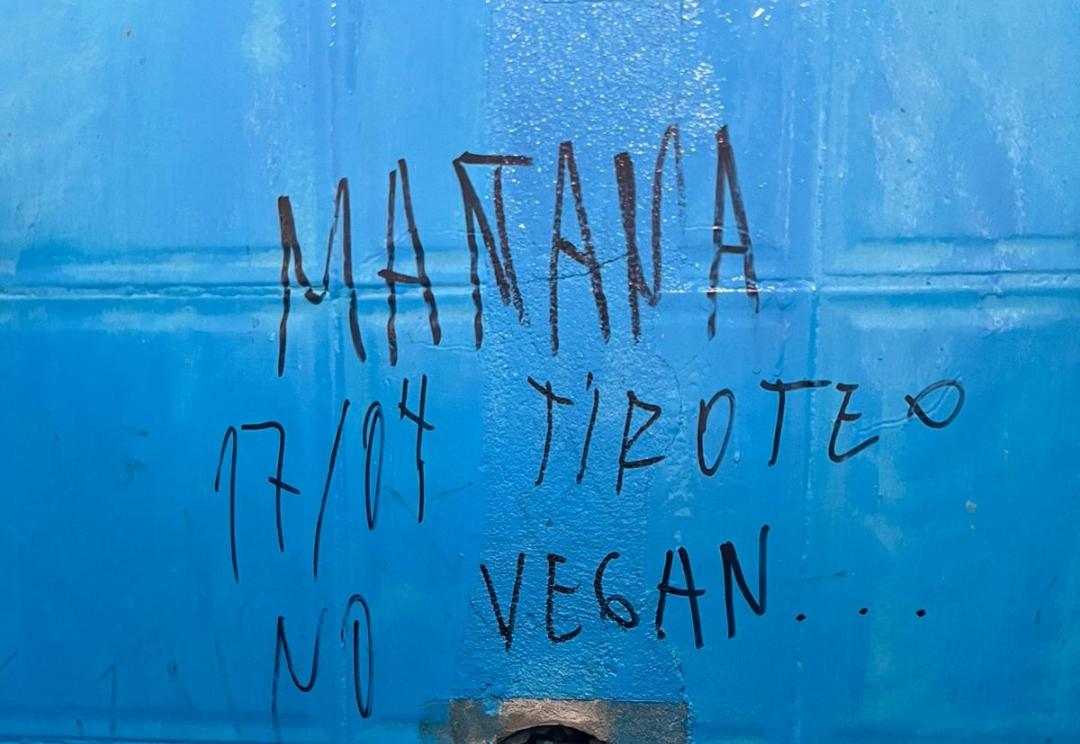 MAÑANA
17/04 TIROTEO
NO VEGAN...